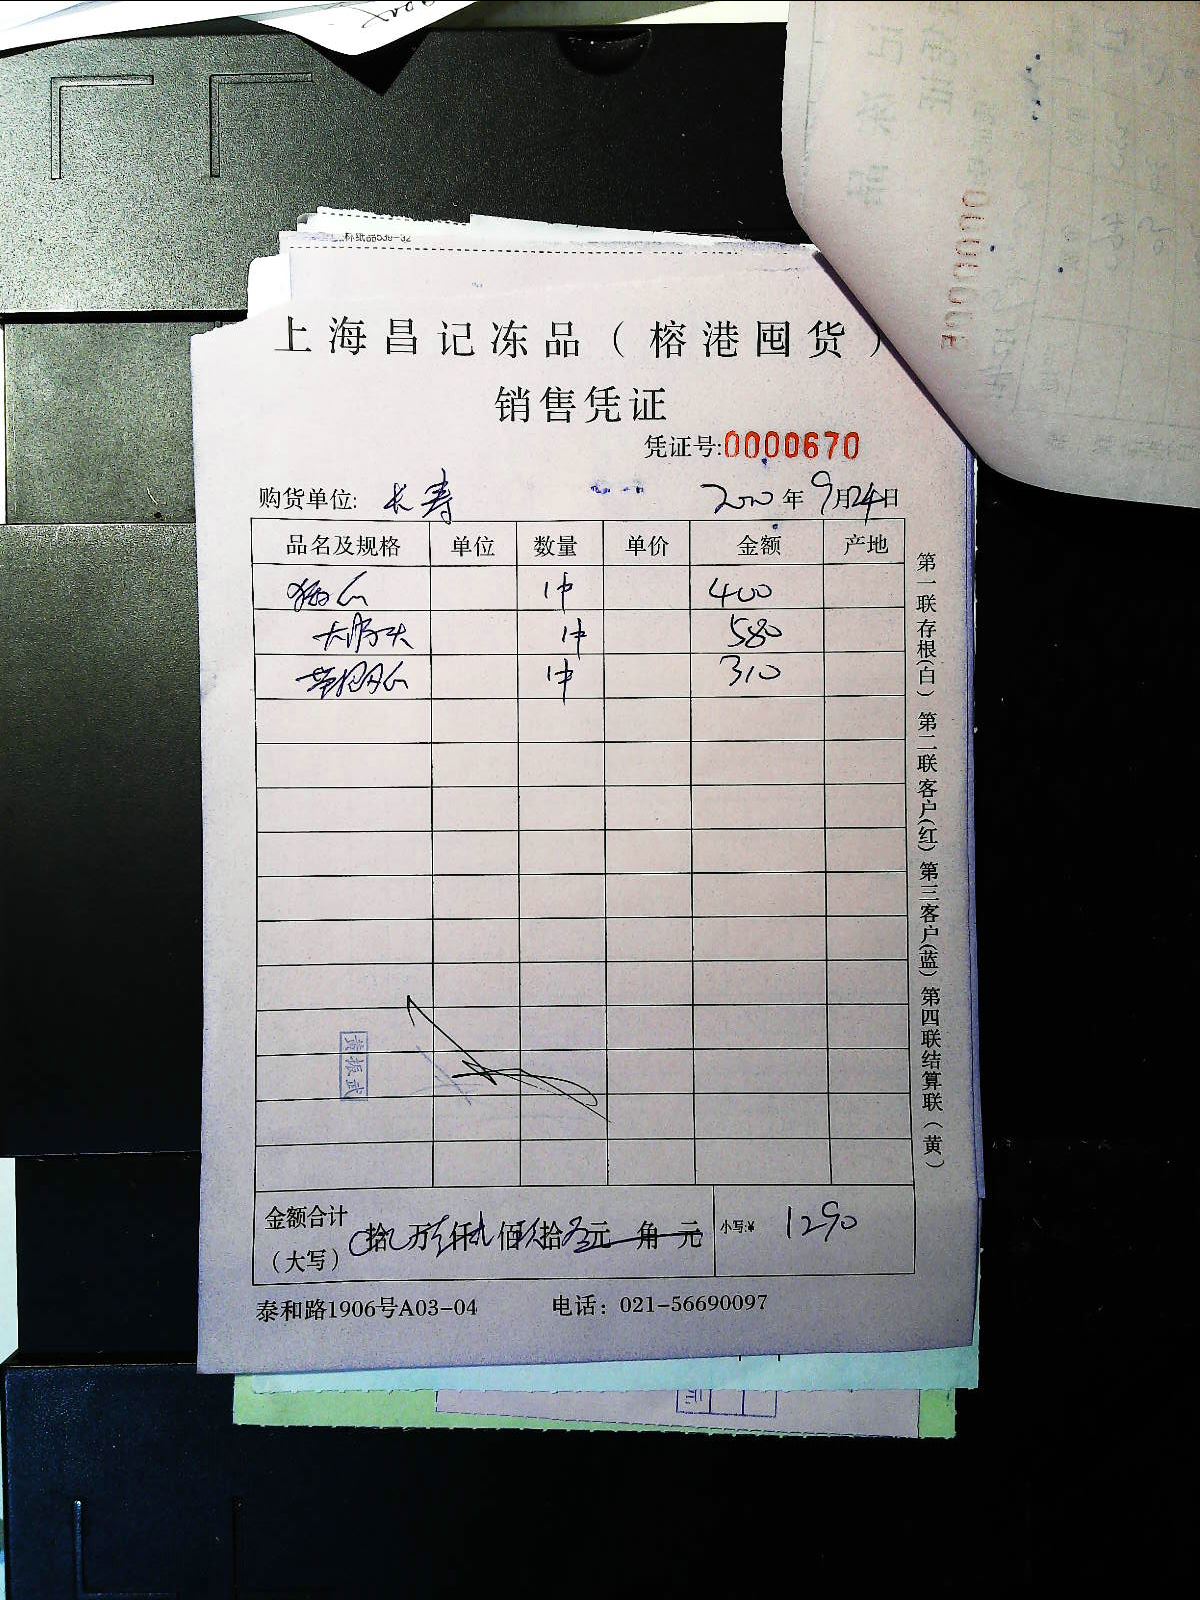 上海昌记冻品（榕港囤货）
销售凭证
凭证号:0000670
购货单位: 长寿 2020年9月24日
品名及规格 单位 数量 单价 金额 产地
1件 400
1件 580
1件 310
黄振武
金额合计
（大写） 拾 万 仟 佰 拾 元 角 元 小写:¥ 1290
泰和路1906号A03-04 电话：021-56690097
第一联存根(白) 第二联客户(红) 第三客户(蓝) 第四联结算联(黄)